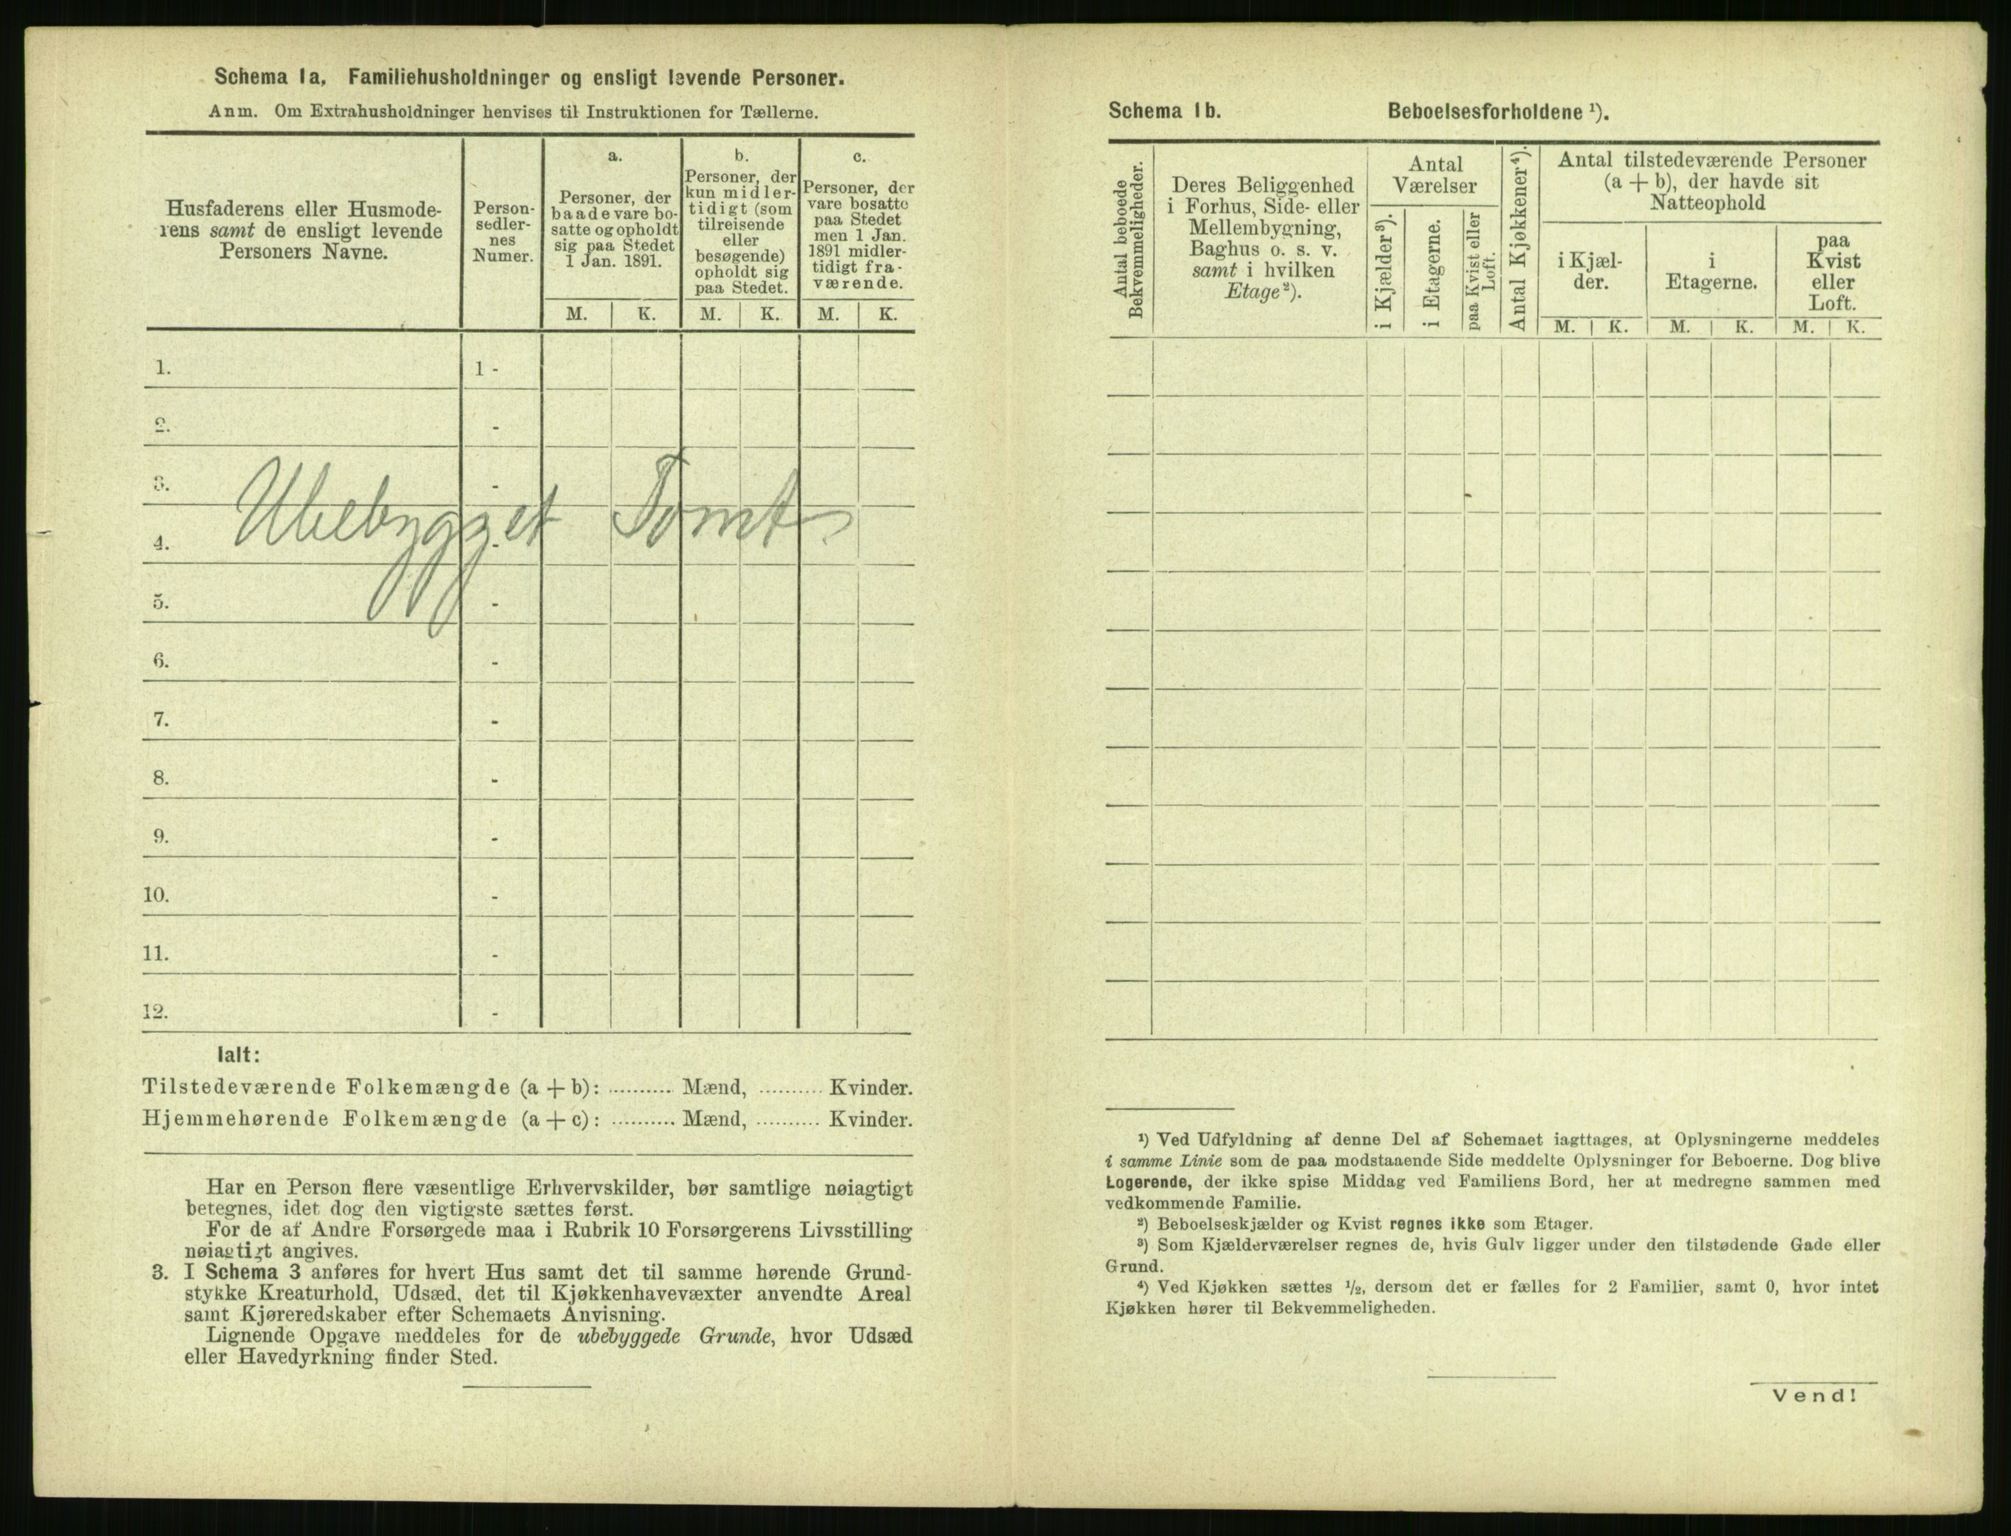 Schema 1a. Familiehusholdninger og ensligt levende Personer.
Anm. Om Extrahusholdninger henvises til Instruktionen for Tællerne.
Husfaderens eller Husmode-
rens samt de ensligt levende
Personers Navne.
Person-
sedler-
nes
Numer.
a.
Personer, der
baade vare bo-
satte og opholdt
sig paa Stedet
1 Jan. 1891.
M. K.
b.
Personer, der
kun midler-
tidigt (som
tilreisende
eller
besøgende)
opholdt sig
paa Stedet.
M. K.
c.
Personer, der
vare bosatte
paa Stedet
men 1 Jan.
1891 midler-
tidigt fra-
værende.
M. K.
1. 1 -
2. -
3. -
Ubebygget Tomt
4. -
5. -
6. -
7. -
8. -
9. -
10. -
11. -
12. -
Ialt:
Tilstedeværende Folkemængde (a + b): .......... Mænd, .......... Kvinder.
Hjemmehørende Folkemængde (a + c): .......... Mænd, .......... Kvinder.
Har en Person flere væsentlige Erhvervskilder, bør samtlige nøiagtigt
betegnes, idet dog den vigtigste sættes først.
For de af Andre Forsørgede maa i Rubrik 10 Forsørgerens Livsstilling
nøiagtigt angives.
3. I Schema 3 anføres for hvert Hus samt det til samme hørende Grund-
stykke Kreaturhold, Udsæd, det til Kjøkkenhavevæxter anvendte Areal
samt Kjøreredskaber efter Schemaets Anvisning.
Lignende Opgave meddeles for de ubebyggede Grunde, hvor Udsæd
eller Havedyrkning finder Sted.
Schema 1b. Beboelsesforholdene ¹).
Antal beboede
Bekvemmeligheder.
Deres Beliggenhed
i Forhus, Side- eller
Mellembygning,
Baghus o. s. v.
samt i hvilken
Etage²).
Antal
Værelser
i Kjælder³).
i Etagerne.
paa Kvist eller
Loft.
Antal Kjøkkener⁴).
Antal tilstedeværende Personer
(a + b), der havde sit
Natteophold
i Kjæl-
der.
i
Etagerne.
paa
Kvist
eller
Loft.
M. K. M. K. M. K.
¹) Ved Udfyldning af denne Del af Schemaet iagttages, at Oplysningerne meddeles
i samme Linie som de paa modstaaende Side meddelte Oplysninger for Beboerne. Dog blive
Logerende, der ikke spise Middag ved Familiens Bord, her at medregne sammen med
vedkommende Familie.
²) Beboelseskjælder og Kvist regnes ikke som Etager.
³) Som Kjælderværelser regnes de, hvis Gulv ligger under den tilstødende Gade eller
Grund.
⁴) Ved Kjøkken sættes ½, dersom det er fælles for 2 Familier, samt 0, hvor intet
Kjøkken hører til Bekvemmeligheden.
Vend!